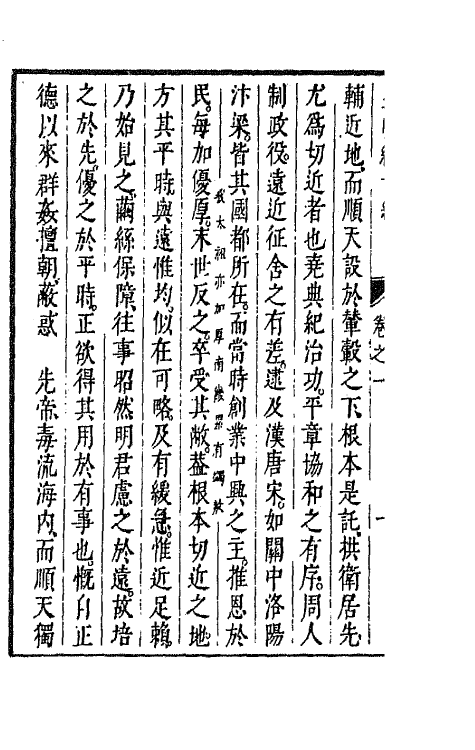 卷之一
一
輔近地而順天設於輦轂之下根本是託拱衛居先
尤爲切近者也堯典紀治功平章協和之有序周人
制政役遠近征舍之有差逮及漢唐宋如關中洛陽
汴梁皆其國都所在而當時創業中興之主推恩於
民每加優厚末世反之卒受其敝蓋根本切近之地
我太祖亦加厚南畿累有蠲赦
方其平時與遠惟均似在可略及有緩急惟近足賴
乃始見之繭絲保障往事昭然明君慮之於遠故培
之於先優之於平時正欲得其用於有事也慨自正
德以來群姦擅朝蔽惑　先帝毒流海内而順天獨